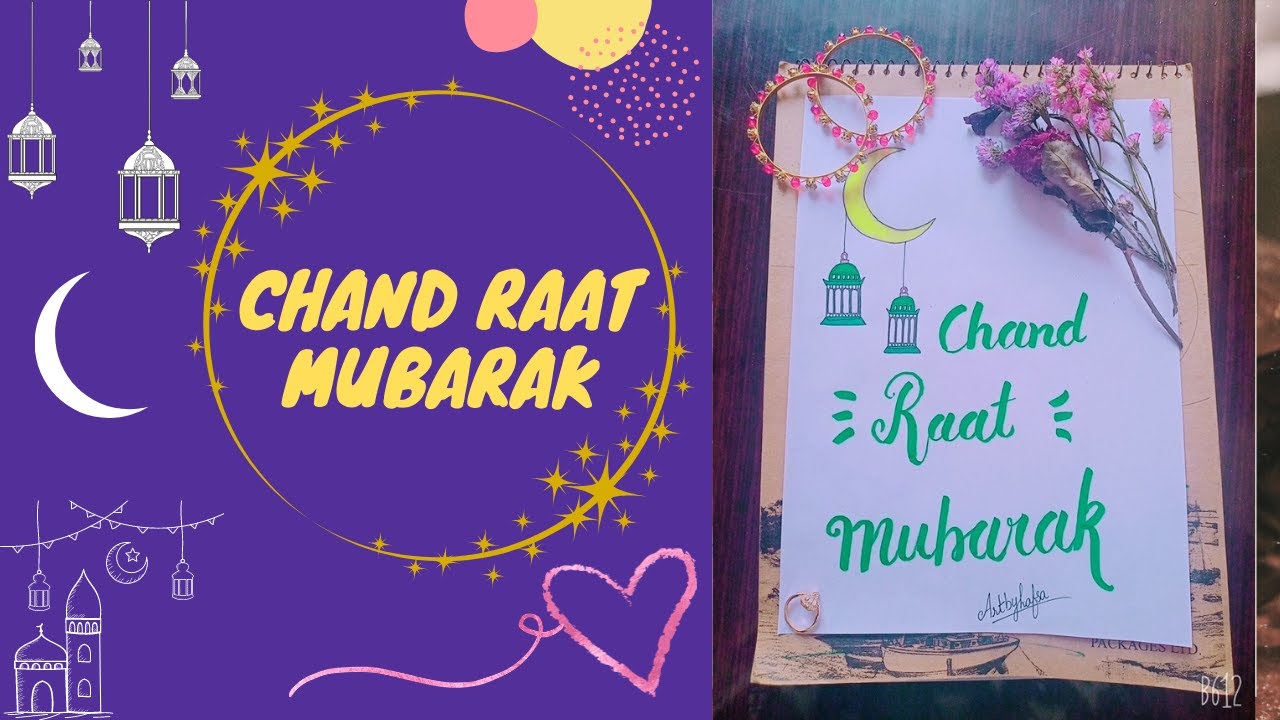 CHAND RAAT
MUBARAK
Chand
Raat
Mubarak
Artbyhafsa
PACKAGES LTD
B612